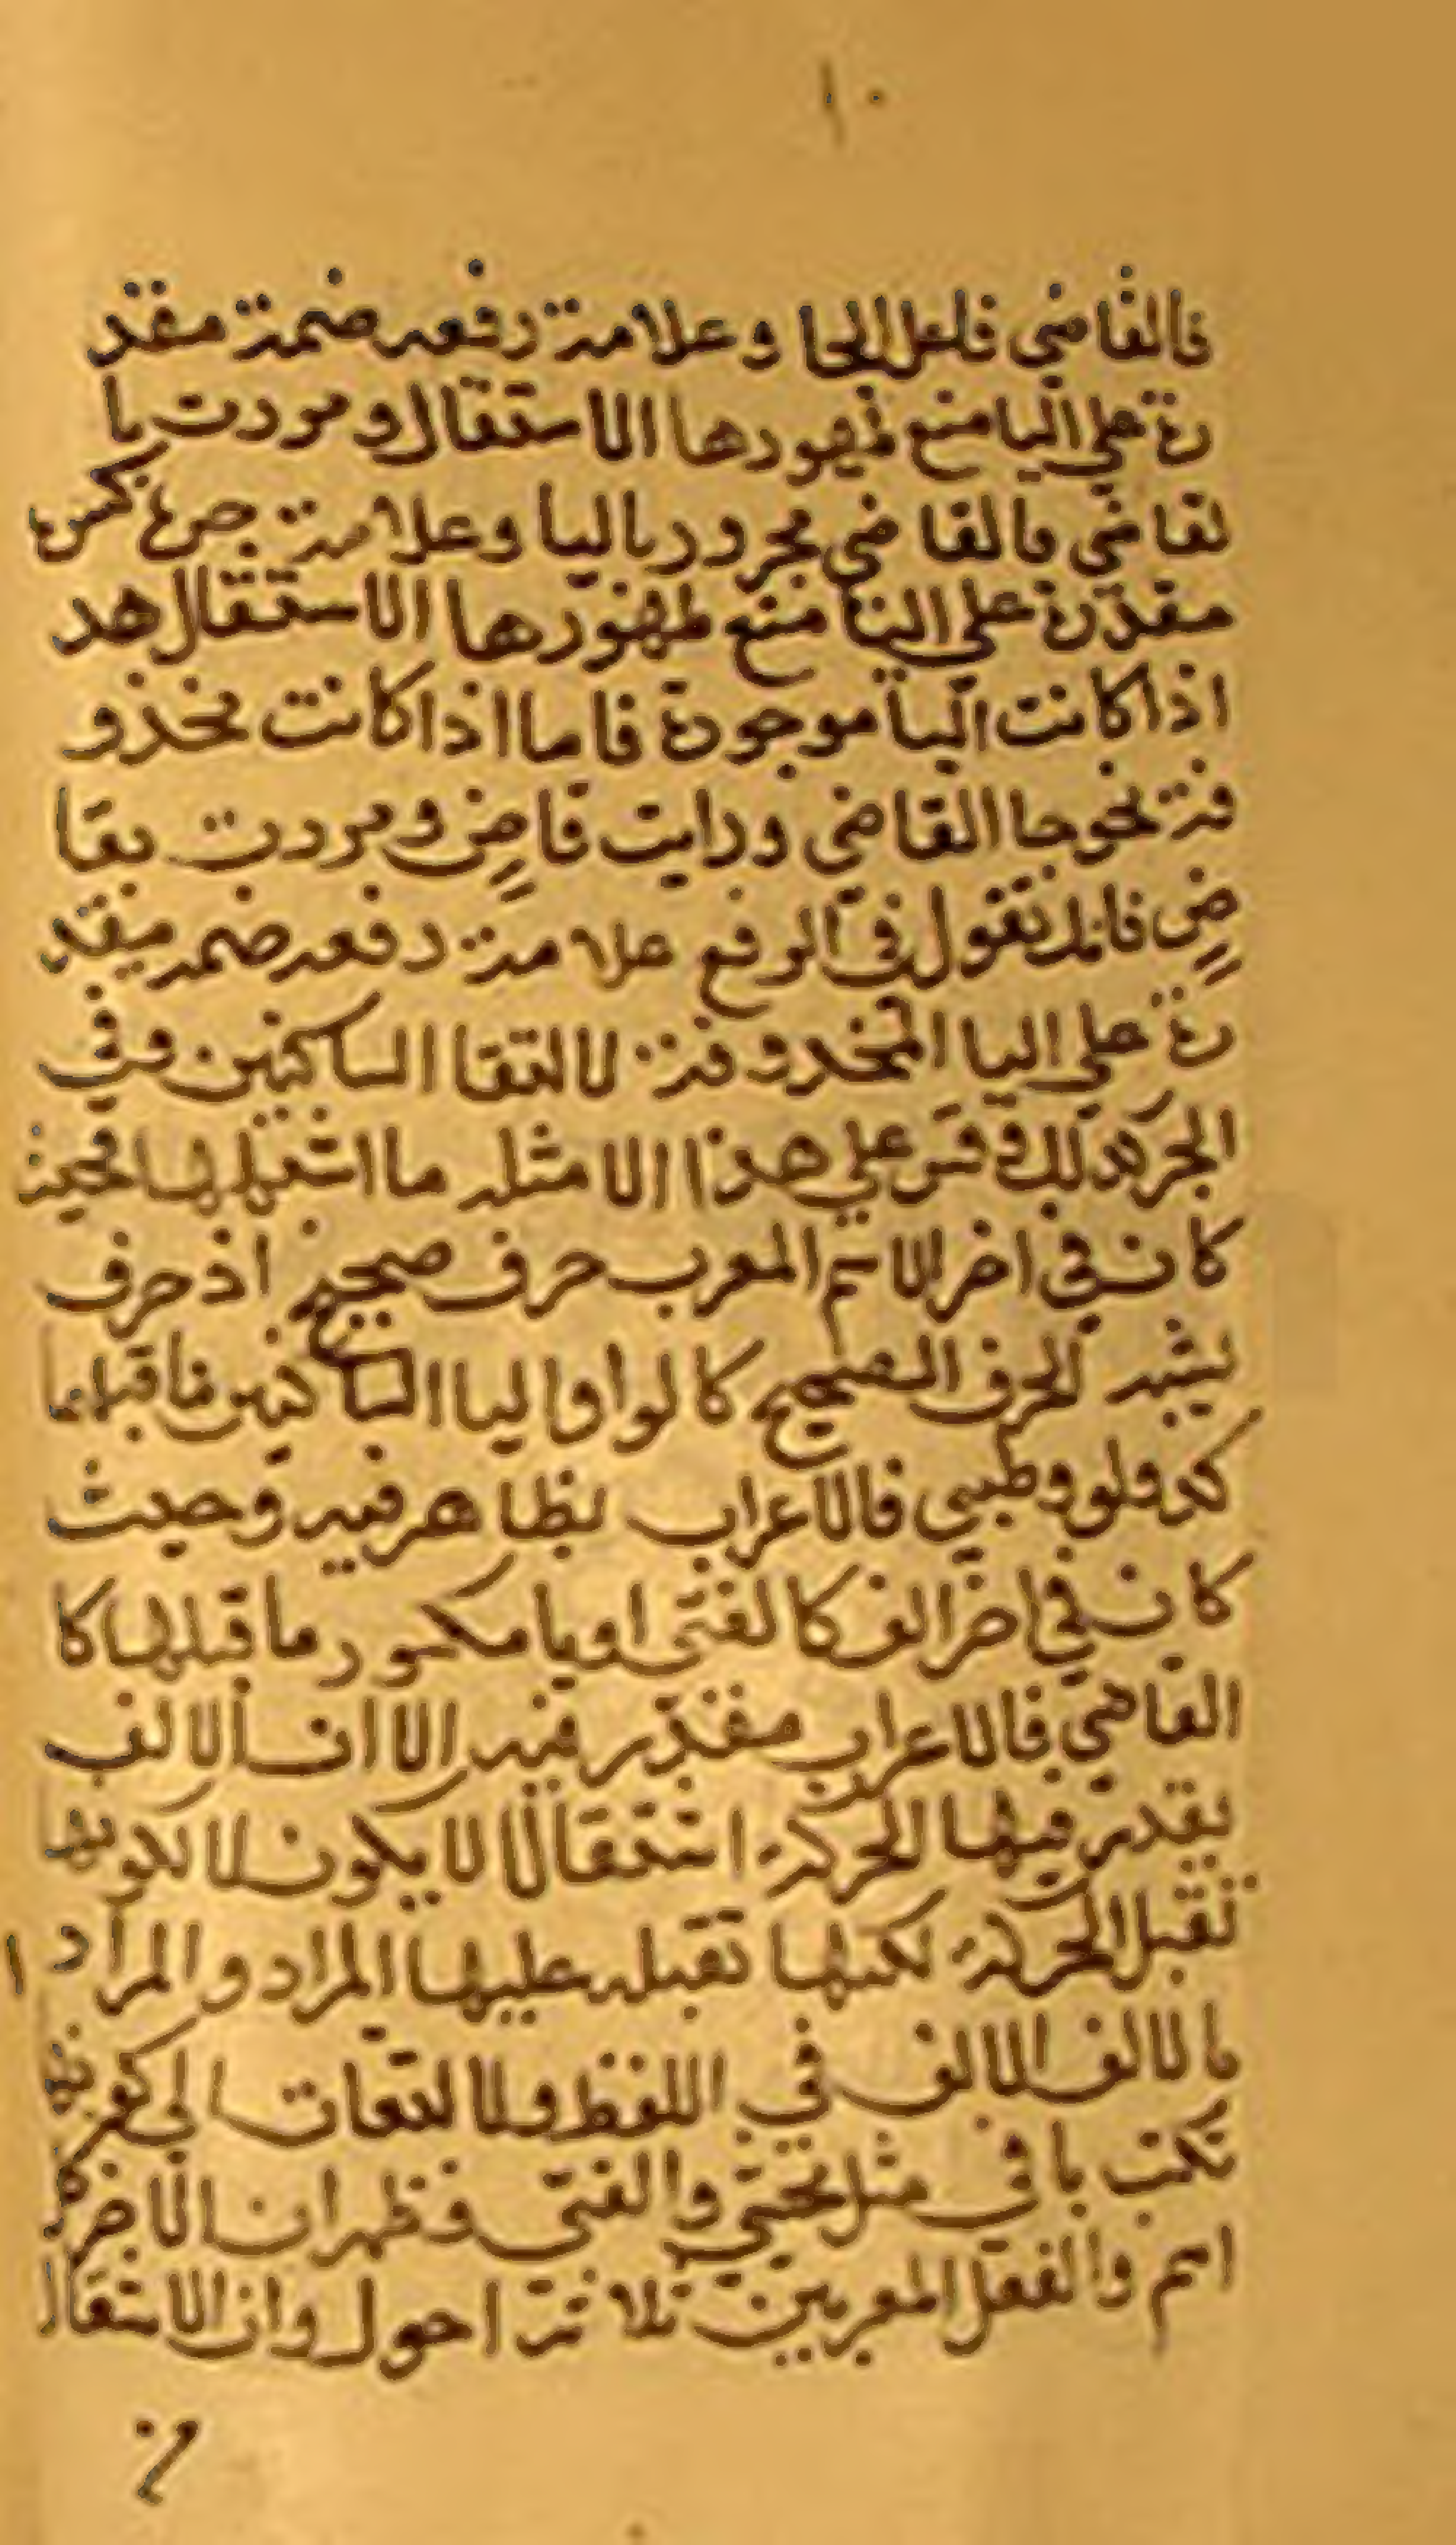 ١٠
فالقاضي فلعل لجا وعلامة رفعه ضمة مقد
رة علي اليا منع ظهورها الاستقال ومررت با
لقاضي بالقاضي مجرور باليا وعلامة جره كس
مقدرة علي اليا منع ظهورها الاستقال هد
اذا كانت اليا موجودة فاما اذا كانت محذو
فة نحو جا القاضي ورايت قاض ومررت بقا
ض فانك تقول في الرفع علامة رفعه ضمه مقد
رة علي اليا المحذوفة لالتقا الساكنين وفي
الجر كذلك وقس علي هذا الامثله ما اشبهها فحيث
كان في اخر الاسم المعرب حرف صحيح اذ حرف
يشبه الحرف الصحيح كالواو اليا الساكنين ماقبلهما
كدلو وظبي فالاعراب يظاهر فيه وحيث
كان في اخر الف كالفتى او يا مكسور ما قبلها كا
القاضي فالاعراب مقدر فيه الا ان الالف
يقدر فيها الحركة استقالا لا يكون لا لكونها
تقبل الحركة لكنها تقبله عليها المراد والمراد ا
ما لالف الالف في اللفظ ولا التعات الي كونه
تكتب يا في مثل يحي والفتى وظهر ان الاخر كل
اسم والفعل المعربين ثلاثة احول وان الاستقال